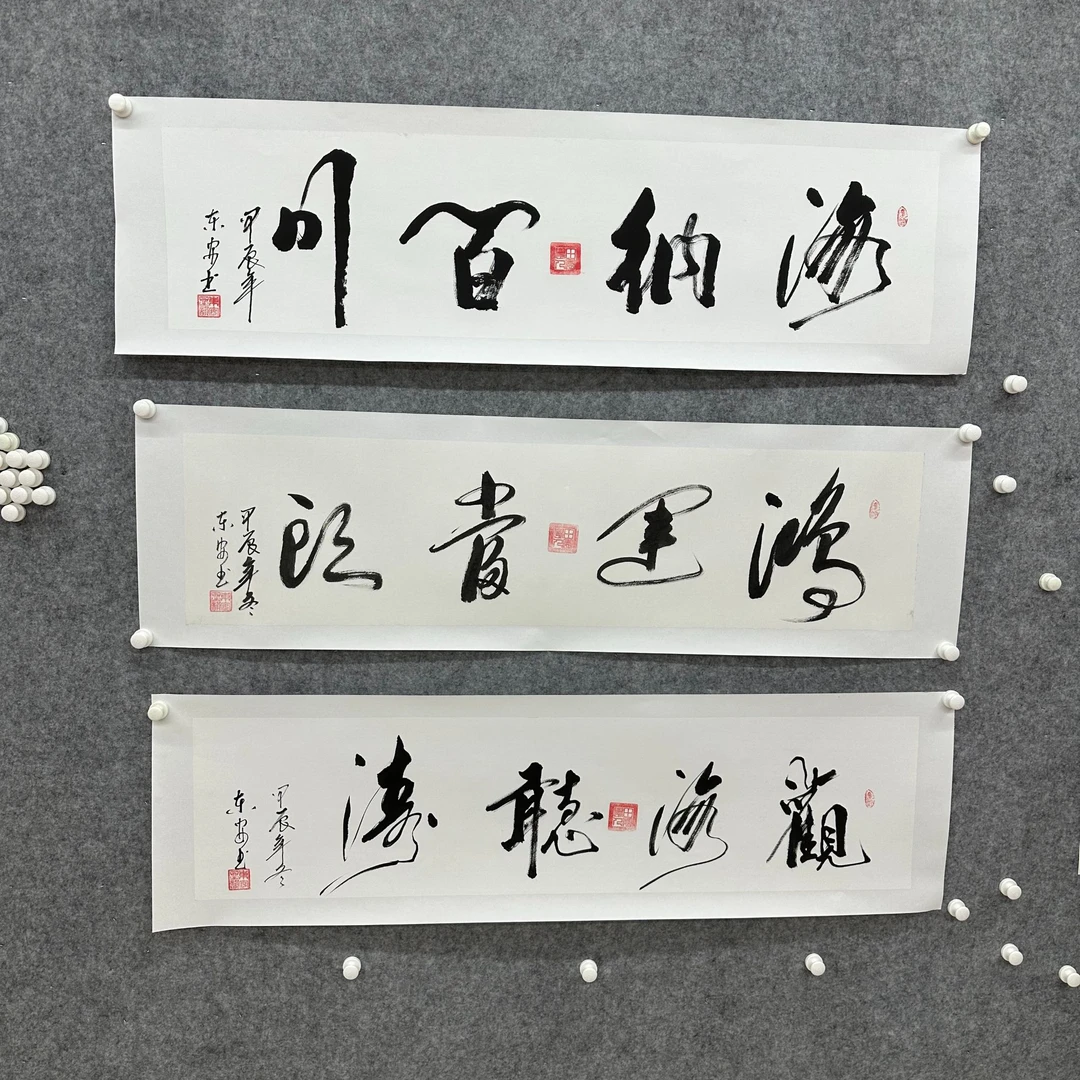 海納百川
甲辰年
东安书
鴻運當頭
甲辰年冬
东安书
觀海聽濤
甲辰年冬
东安书